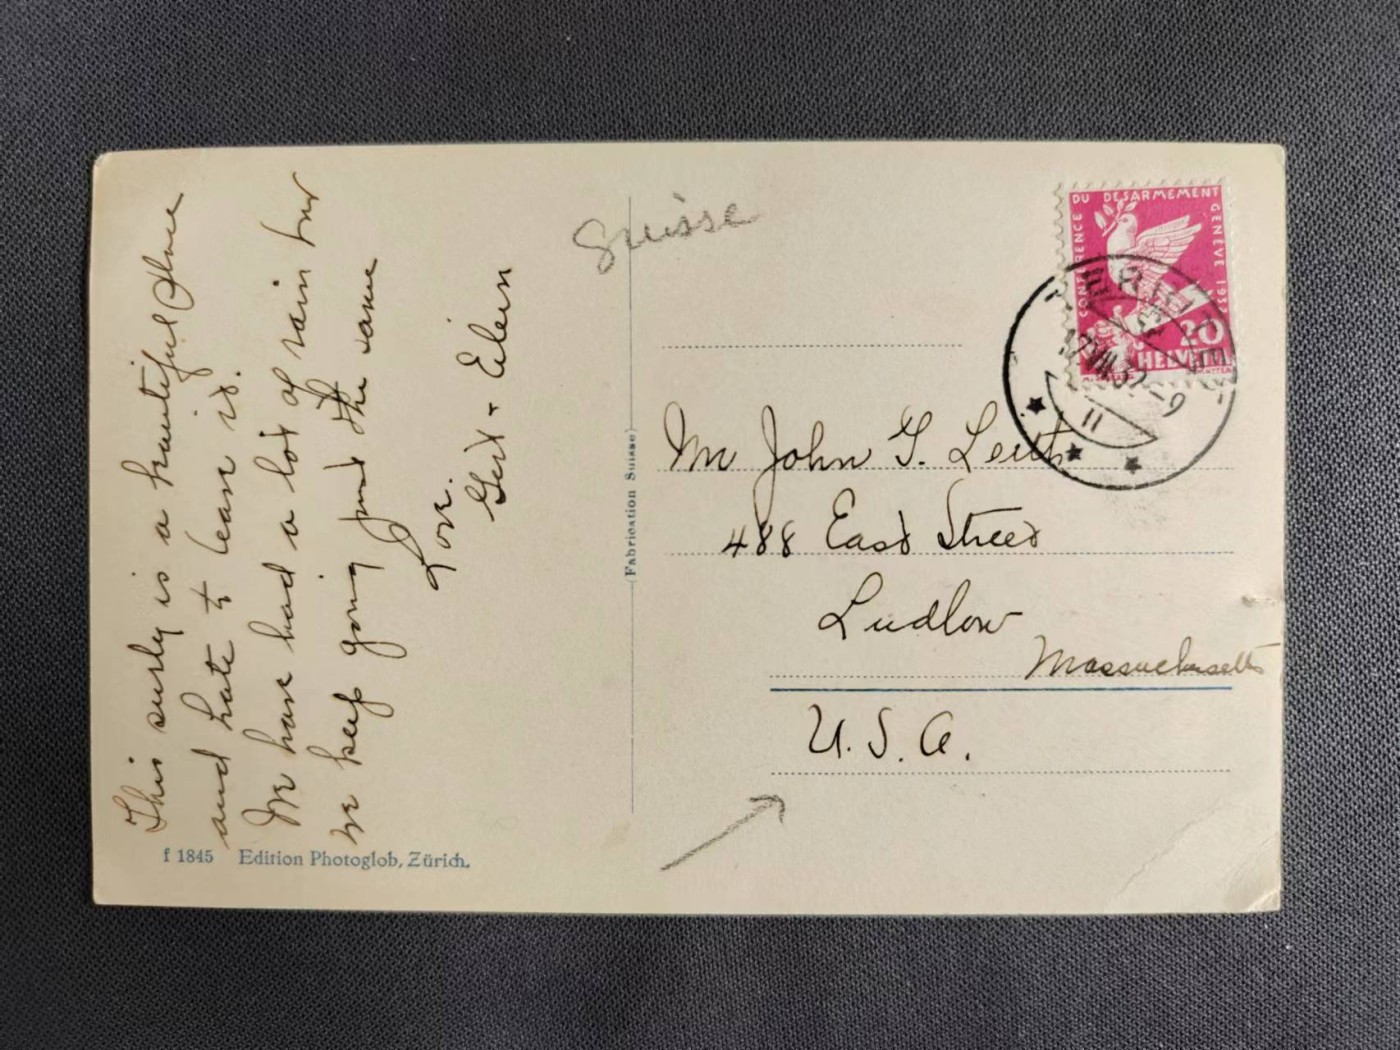 This surely is a beautiful place
and hate to leave it.
We have had a lot of rain but
we keep going just the same
Love.
Gert + Eileen
f 1845 Edition Photoglob, Zürich.
(Fabrication Suisse)
Suisse
CONFERENCE DU DESARMEMENT GENEVE 1932
20
HELVETIA
VIII.32.-9
11
Mr John G. Leith
488 East Street
Ludlow
Massachusetts
U.S.A.